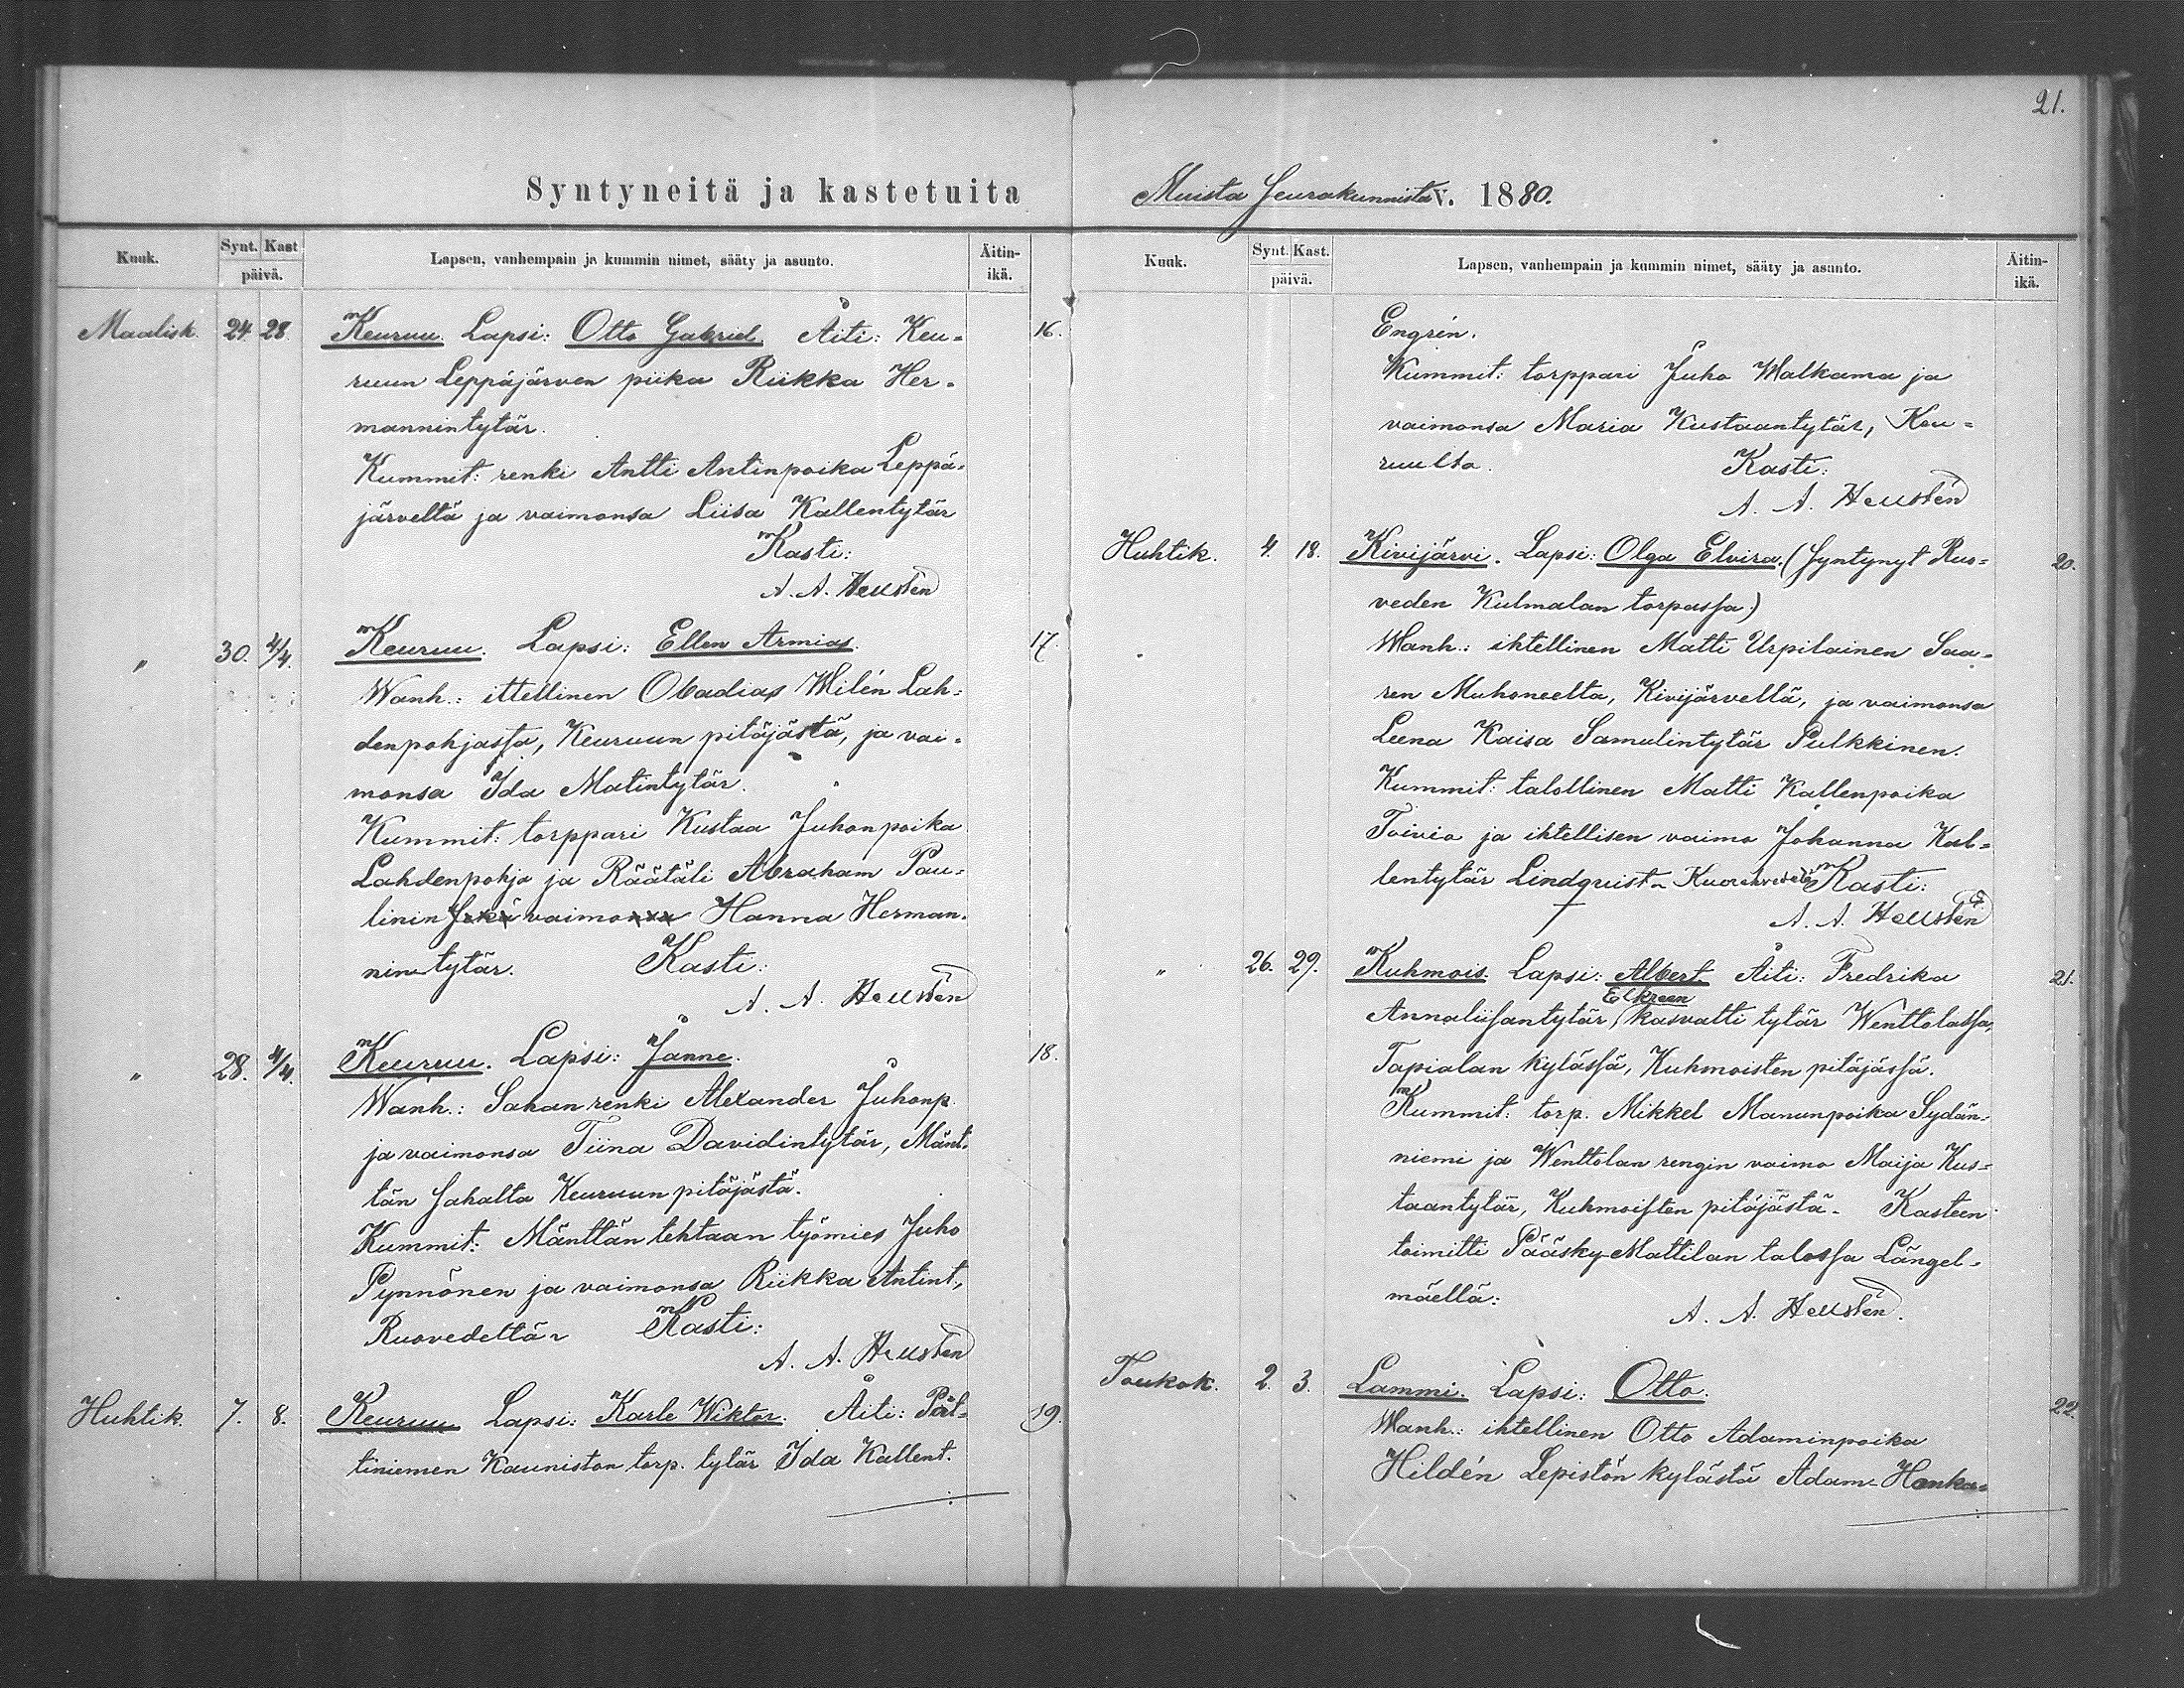 21.
Syntyneitä ja kastetuita
Kuuk. Synt. Kast päivä. Lapsen, vanhempain ja kummin nimet, sääty ja asunto. Äitin-ikä.
Maalisk. 24 28 Keuruu. Lapsi: Otto Gabriel. Äiti: Keu- 16.
ruun Leppäjärven piika Riikka Her-
mannintytär.
Kummit: renki Antti Antinpoika Leppä-
järveltä ja vaimonsa Liisa Kallentytär
Kasti:
A. A. Hellstén
" 30. 4/4. Keuruu. Lapsi: Ellen Armias. 17.
Wanh.: ittellinen Obadias Wilén Lah-
denpohjassa, Keuruun pitäjästä, ja vai-
monsa Ida Matintytär.
Kummit: torppari Kustaa Juhonpoika
Lahdenpohja ja Räätäli Abraham Pau-
linin vaimo Hanna Herman-
nintytär. Kasti:
A. A. Hellstén
" 28. 4/4. Keuruu. Lapsi: Janne. 18.
Wanh.: Sahan renki Alexander Juhonp.
ja vaimonsa Tiina Davidintytär, Mänt-
tän sahalta Keuruun pitäjästä.
Kummit: Mänttän tehtaan työmies Juho
Pynnönen ja vaimonsa Riikka Antint.,
Ruovedeltä. Kasti:
A. A. Hellstén
Huhtik. 7. 8. Keuruu Lapsi: Karle Wiktor. Äiti: Pöl- 19.
tiniemen Kauniston torp. tytär Ida Kallent.
Muista Seurakunnista v. 1880.
Kuuk. Synt. Kast. päivä. Lapsen, vanhempain ja kummin nimet, sääty ja asunto. Äitin-ikä.
Engrén.
Kummit: torppari Juho Walkama ja
vaimonsa Maria Kustaantytär, Keu-
ruulta. Kasti:
A. A. Hellstén
Huhtik. 4. 18. Kivijärvi. Lapsi: Olga Elvira. (Syntynyt Ruo- 20.
veden Kulmalan torpassa.)
Wanh.: ihtellinen Matti Urpilainen Saa-
ren Muhoneelta, Kivijärvellä, ja vaimonsa
Leena Kaisa Samulintytär Pulkkinen.
Kummit: talollinen Matti Kallenpoika
Toivio ja ihtellisen vaimo Johanna Kal-
lentytär Lindquist Kuorehvedeltä Kasti:
A. A. Hellstén
" 26. 29. Kuhmois. Lapsi: Albert. Äiti: Fredrika 21.
Elkreen
Annaliisantytär, kasvatti tytär Wenttolassa,
Tapialan kylässä, Kuhmoisten pitäjässä.
Kummit: torp. Mikkel Manunpoika Sydän-
niemi ja Wenttolan rengin vaimo Maija Kus-
taantytär, Kuhmoisten pitäjästä. Kasteen
toimitti Pääsky-Mattilan talossa Längel-
mäellä: A. A. Hellstén.
Toukok. 2. 3. Lammi. Lapsi: Otto. 22.
Wanh.: ihtellinen Otto Adaminpoika
Hildén Lepistön kylästä Adam Hanka-